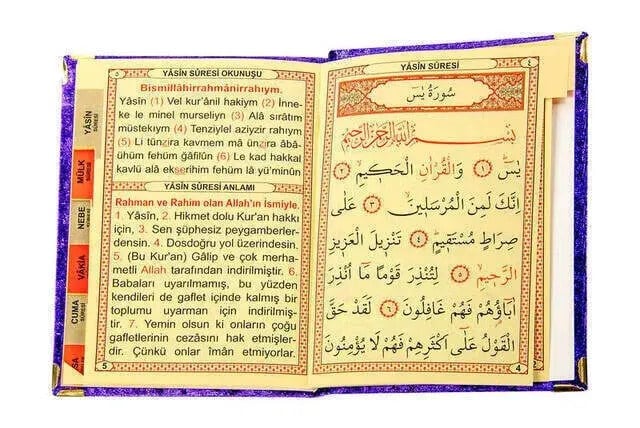 ٤
YÂSÎN SÛRESİ
سُورَةُ يٰسٓ
بِسْمِ اللّٰهِ الرَّحْمٰنِ الرَّحِيمِ
يٰسٓ ﴿١﴾ وَالْقُرْاٰنِ الْحَكِيمِۙ ﴿٢﴾
اِنَّكَ لَمِنَ الْمُرْسَلِينَۙ ﴿٣﴾ عَلٰى
صِرَاطٍ مُسْتَقِيمٍۜ ﴿٤﴾ تَنْزِيلَ الْعَزِيزِ
الرَّحِيمِۙ ﴿٥﴾ لِتُنْذِرَ قَوْمًا مَٓا اُنْذِرَ
اٰبَٓاؤُ۬هُمْ فَهُمْ غَافِلُونَ ﴿٦﴾ لَقَدْ حَقَّ
الْقَوْلُ عَلٰٓى اَكْثَرِهِمْ فَهُمْ لَا يُؤْمِنُونَ
4
٥
YÂSÎN SÛRESİ OKUNUŞU
Bismillâhirrahmânirrahıym.
Yâsîn (1) Vel kur'ânil hakiym (2) İnne-
ke le minel murseliyn (3) Alâ sırâtım
müstekıym (4) Tenziylel aziyzir rahıym
(5) Li tünzira kavmem mâ ünzira âbâ-
ühüm fehüm ğâfilûn (6) Le kad hakkal
kavlü alâ ekserihim fehüm lâ yü'minûn
YÂSÎN SÛRESİ ANLAMI
Rahman ve Rahim olan Allah'ın ismiyle.
1. Yâsîn, 2. Hikmet dolu Kur'an hakkı
için, 3. Sen şüphesiz peygamberler-
densin. 4. Dosdoğru yol üzerindesin.
5. (Bu Kur'an) Gâlip ve çok merha-
metli Allah tarafından indirilmiştir. 6.
Babaları uyarılmamış, bu yüzden
kendileri de gaflet içinde kalmış bir
toplumu uyarman için indirilmiş-
tir. 7. Yemin olsun ki onların çoğu
gafletlerinin cezasını hak etmişler-
dir. Çünkü onlar îman etmiyorlar.
5
YÂSÎN
SÛRESİ
MÜLK
SÛRESİ
NEBE
SÛRESİ
VÂKIA
SÛRESİ
CUMA
SÛRESİ